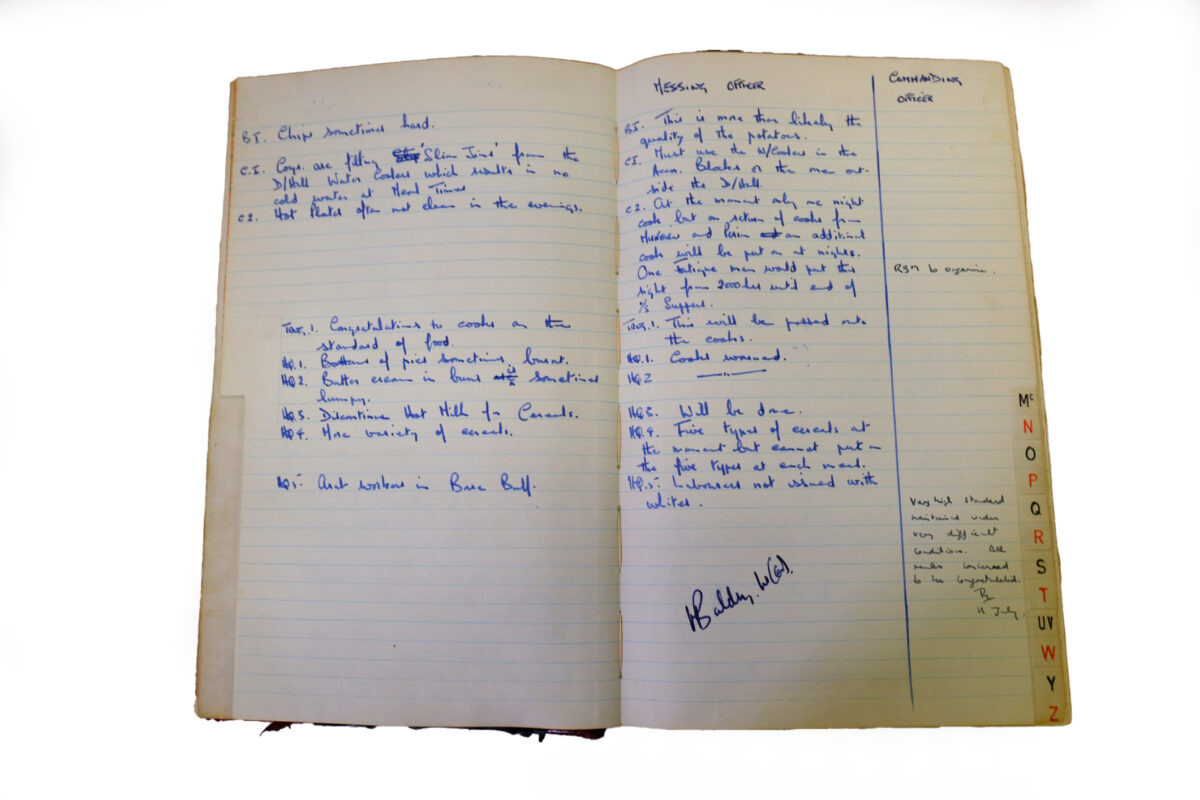 B1. Chips sometimes hard.
C.1. Coys. are filling 'Slim Jims' from the
D/Hall Water Coolers which results in no
cold water at Meal Times
C2. Hot Plates often not clean in the evenings.
1. Congratulations to cooks on the
standard of food.
HQ.1. Bottoms of pies sometimes burnt.
HQ2. Butter cream in buns is sometimes
lumpy.
HQ.3. Discontinue Hot Milk for Cereals.
HQ4. More variety of cereals.
HQ5 workers in Bare Buff.
MESSING OFFICER
B1. This is more than likely the
quality of the potatoes.
C1. Must use the W/Coolers in the
Accn. Blocks or the one out-
side the D/Hall.
C2. At the moment only one night
cook but on return of cooks from
and an additional
cook will be put on at nights.
One fatigue man would put this
right from 2000 hrs until end of
Suppers.
1. This will be passed onto
the cooks.
HQ.1. Cooks warned.
HQ2 — " —
HQ3. Will be done.
HQ.4. Five types of cereals at
the moment but cannot put on
the five types at each meal.
HQ.5. Labourers not issued with
whites.
COMMANDING
OFFICER
RSM to organise.
Very high standard
maintained under
very difficult
conditions. All
ranks concerned
to be congratulated.
11 July.
Mc
N
O
P
Q
R
S
T
UV
W
Y
Z